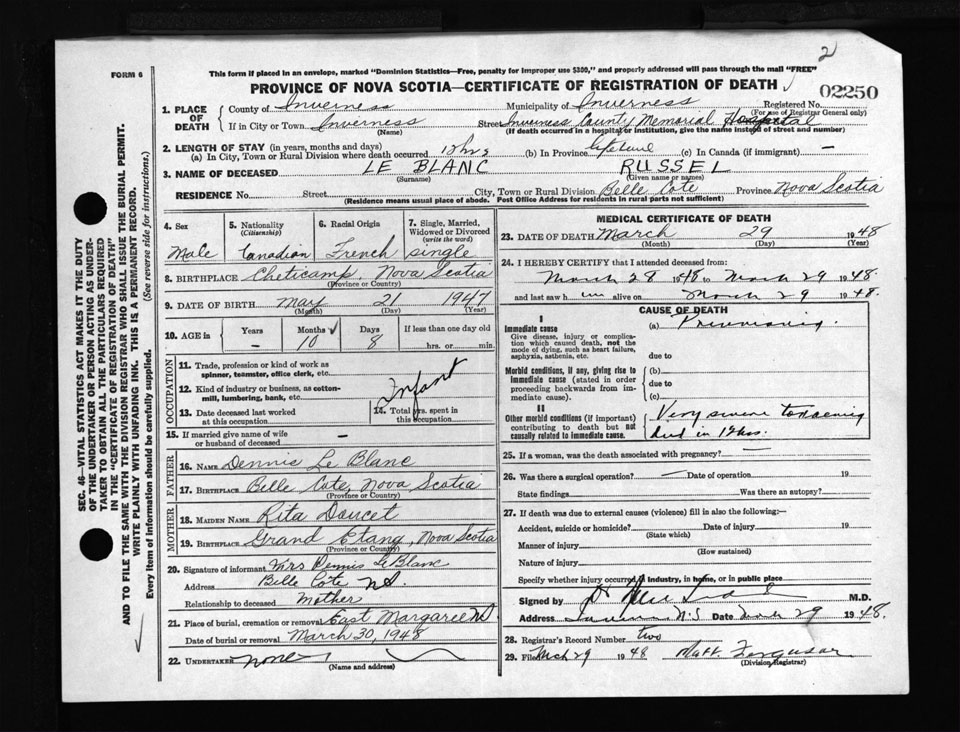 2
FORM 6
This form if placed in an envelope, marked "Dominion Statistics—Free, penalty for improper use $300," and properly addressed will pass through the mail "FREE"
PROVINCE OF NOVA SCOTIA—CERTIFICATE OF REGISTRATION OF DEATH
02250
1. PLACE OF DEATH
County of Inverness Municipality of Inverness Registered No.
(For use of Registrar General only)
If in City or Town Inverness Street Inverness County Memorial Hospital
(Name) (If death occurred in a hospital or institution, give the name instead of street and number)
2. LENGTH OF STAY (in years, months and days)
(a) In City, Town or Rural Division where death occurred 12hrs (b) In Province lifetime (c) In Canada (if immigrant) —
3. NAME OF DECEASED LE BLANC RUSSEL
(Surname) (Given name or names)
RESIDENCE No. Street City, Town or Rural Division Belle Cote Province Nova Scotia
(Residence means usual place of abode. Post Office Address for residents in rural parts not sufficient)
4. Sex
Male
5. Nationality
(Citizenship)
Canadian
6. Racial Origin
French
7. Single, Married, Widowed or Divorced
(write the word)
single
8. BIRTHPLACE Cheticamp, Nova Scotia
(Province or Country)
9. DATE OF BIRTH May 21 1947
(Month) (Day) (Year)
10. AGE in
Years Months Days If less than one day old
— 10 8 hrs. or min.
OCCUPATION
11. Trade, profession or kind of work as
spinner, teamster, office clerk, etc.
12. Kind of industry or business, as cotton-
mill, lumbering, bank, etc.
Infant
13. Date deceased last worked
at this occupation
14. Total yrs. spent in
this occupation
15. If married give name of wife
or husband of deceased —
FATHER
16. NAME Dennis Le Blanc
17. BIRTHPLACE Belle Cote, Nova Scotia
(Province or Country)
MOTHER
18. MAIDEN NAME Rita Doucet
19. BIRTHPLACE Grand Etang, Nova Scotia
(Province or Country)
20. Signature of informant Mrs Dennis LeBlanc
Address Belle Cote NS.
Relationship to deceased Mother
21. Place of burial, cremation or removal East Margaree NS
Date of burial or removal March 30, 1948
22. UNDERTAKER none
(Name and address)
MEDICAL CERTIFICATE OF DEATH
23. DATE OF DEATH March 29 1948
(Month) (Day) (Year)
24. I HEREBY CERTIFY that I attended deceased from:
March 28 1948 to March 29 1948.
and last saw h im alive on March 29 1948.
CAUSE OF DEATH
I
Immediate cause
Give disease, injury or complica-
tion which caused death, not the
mode of dying, such as heart failure,
asphyxia, asthenia, etc.
(a)
due to
Morbid conditions, if any, giving rise to
immediate cause (stated in order
proceeding backwards from im-
mediate cause).
(b)
due to
(c)
II
Other morbid conditions (if important)
contributing to death but not
causally related to immediate cause.
Very
died in 12 hrs.
25. If a woman, was the death associated with pregnancy? —
26. Was there a surgical operation? — Date of operation 19
State findings Was there an autopsy?
27. If death was due to external causes (violence) fill in also the following:—
Accident, suicide or homicide? Date of injury 19
(State which)
Manner of injury
(How sustained)
Nature of injury
Specify whether injury occurred in industry, in home, or in public place
Signed by M.D.
Address Inverness N.S Date March 29 1948.
28. Registrar's Record Number two
29. Filed Mch 29 1948 Matt. Ferguson
(Division Registrar)
SEC. 46—VITAL STATISTICS ACT MAKES IT THE DUTY
OF THE UNDERTAKER OR PERSON ACTING AS UNDER-
TAKER TO OBTAIN ALL THE PARTICULARS REQUIRED
IN THE "CERTIFICATE OF REGISTRATION OF DEATH"
AND TO FILE THE SAME WITH THE DIVISION REGISTRAR WHO SHALL ISSUE THE BURIAL PERMIT.
WRITE PLAINLY WITH UNFADING INK. THIS IS A PERMANENT RECORD.
Every item of information should be carefully supplied. (See reverse side for instructions.)